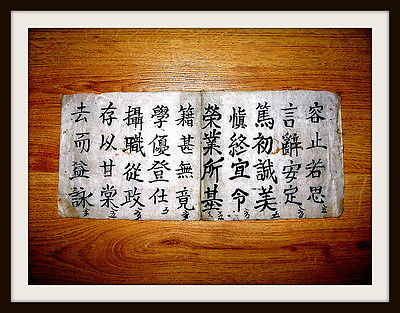 容止若思
言辭安定
篤初誠美
慎終宜令
榮業所基
籍甚無竟
學優登仕
攝職從政
存以甘棠
去而益詠